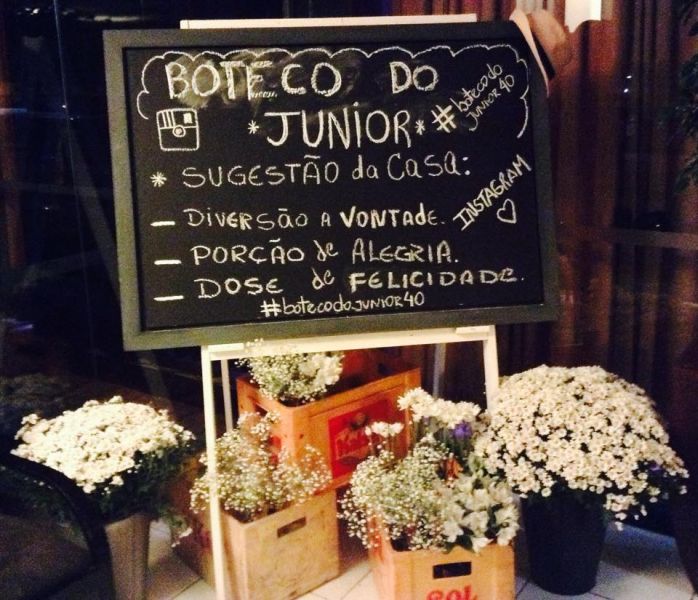 BOTECO DO
* JUNIOR *
#botecodo
JUNIOR40
* SUGESTÃO da CASA:
INSTAGRAM
— DIVERSÃO A VONTADE.
— PORÇÃO de ALEGRIA.
— DOSE de FELICIDADE.
#botecodoJUNIOR40
GOL